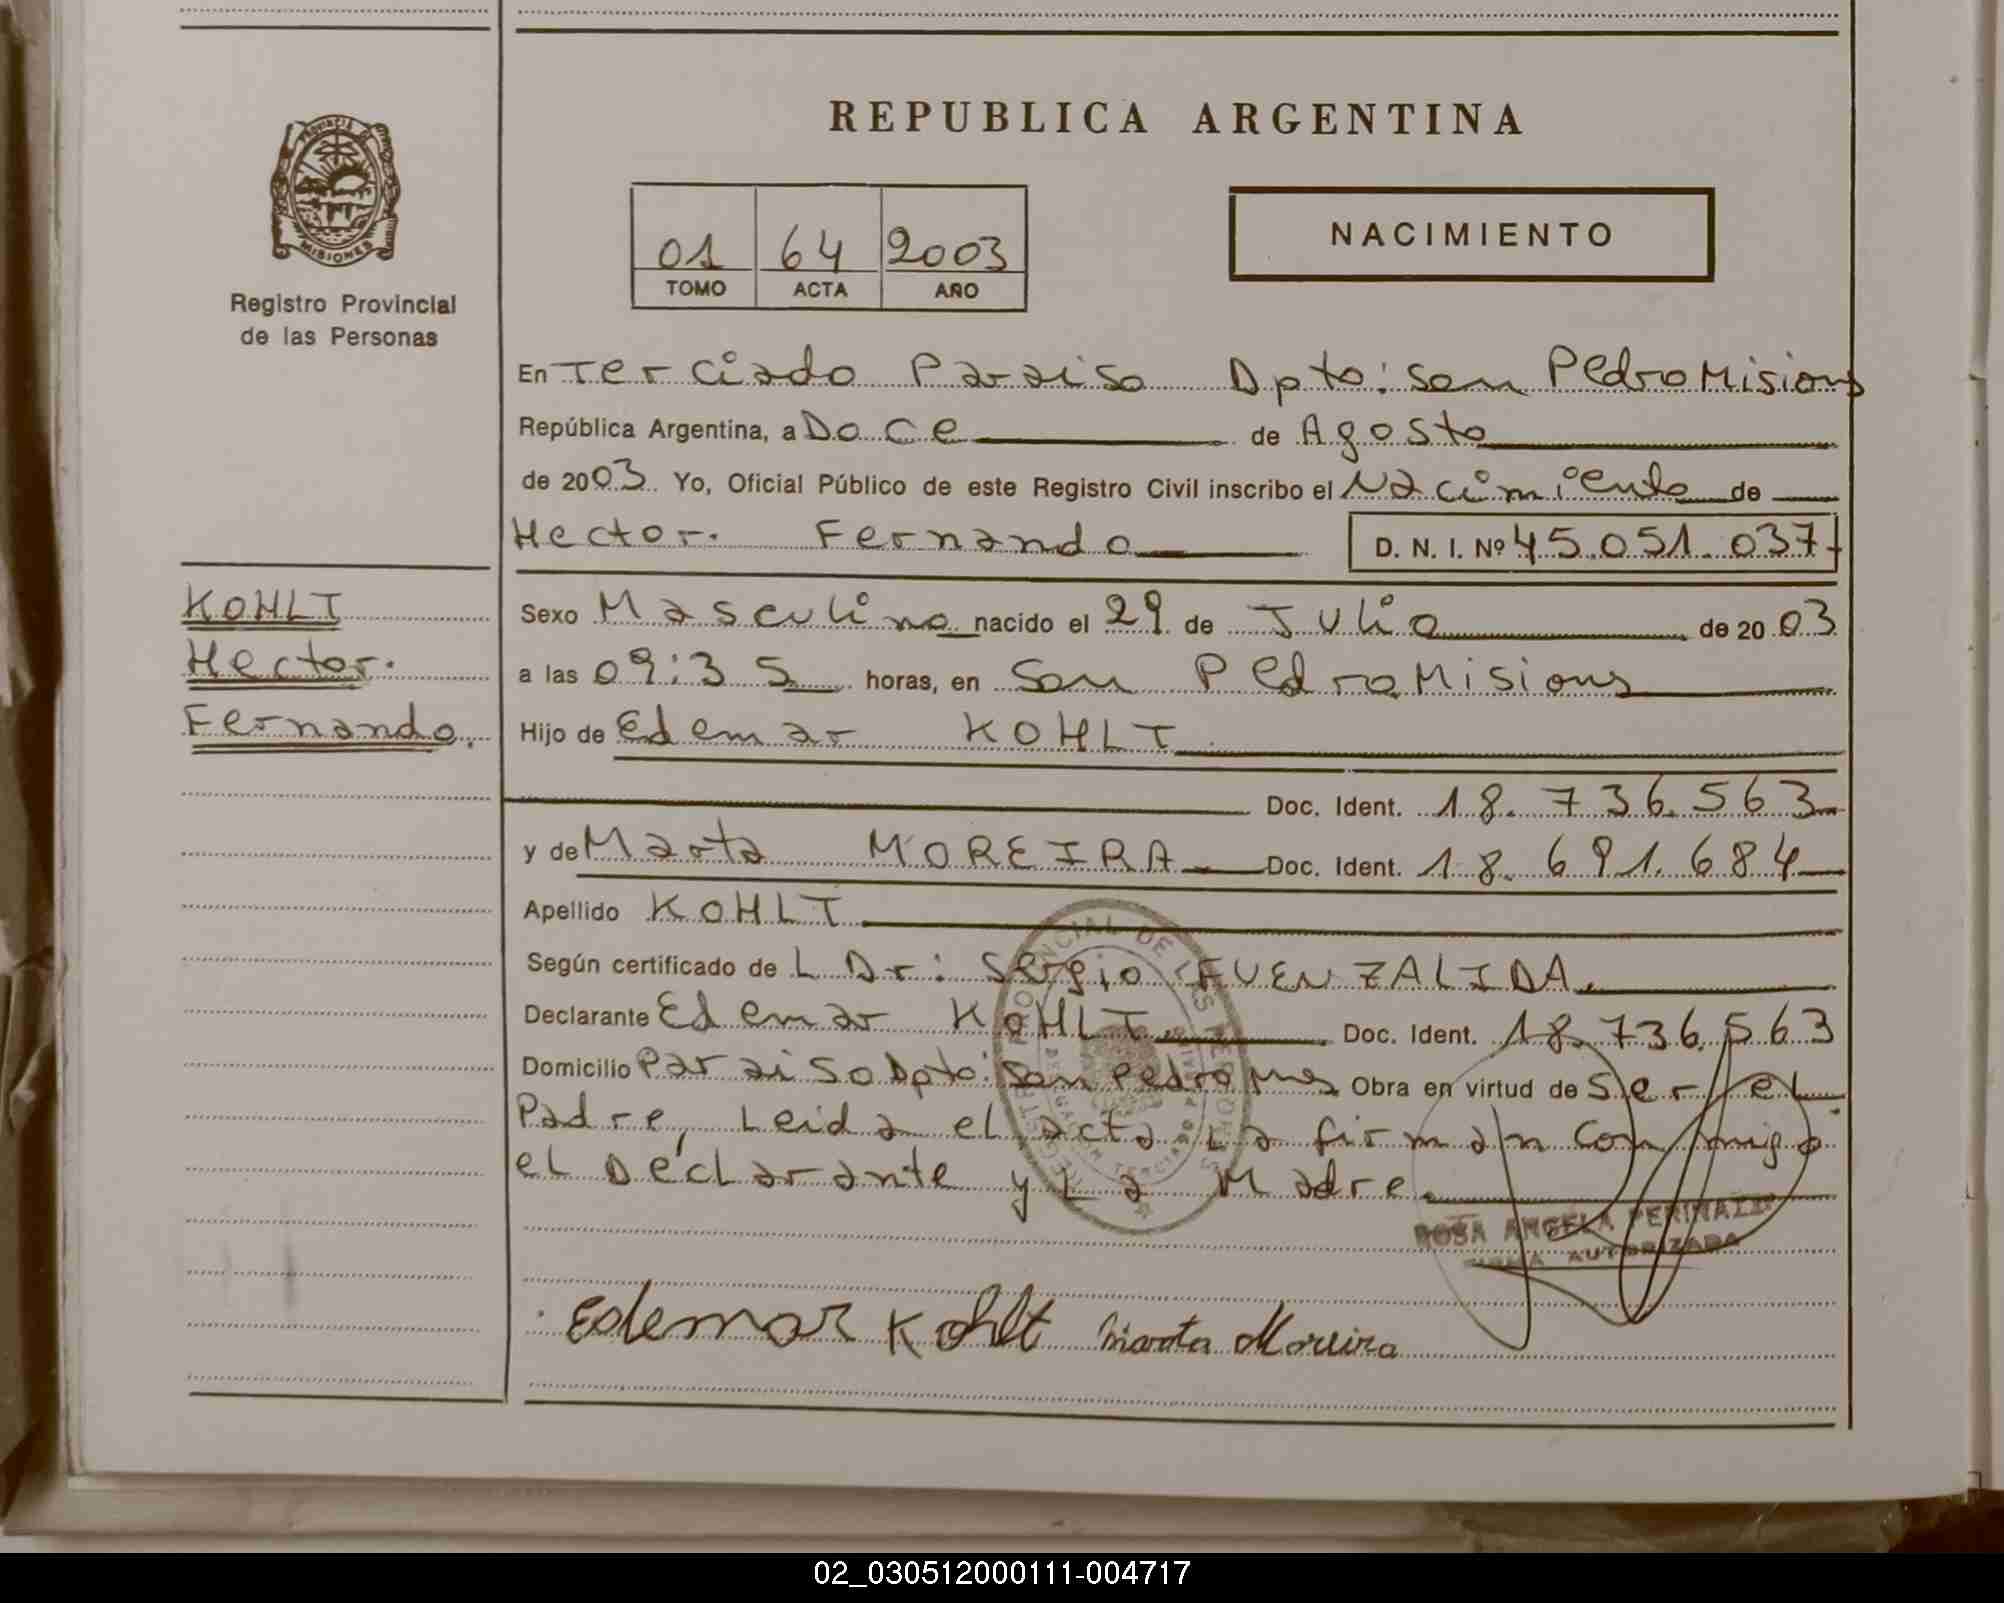 REPUBLICA ARGENTINA
PROVINCIA DE
MISIONES
Registro Provincial
de las Personas
01 64 2003
TOMO ACTA AÑO
NACIMIENTO
En Terciado Paraiso Dpto: san Pedro Misiones
República Argentina, a Doce de Agosto
de 2003 Yo, Oficial Público de este Registro Civil inscribo el Nacimiento de
Hector Fernando D. N. I. Nº 45.051.037
KOHLT
Hector
Fernando.
Sexo Masculino nacido el 29 de Julio de 2003
a las 09:35 horas, en San Pedro Misiones
Hijo de Edemar KOHLT
Doc. Ident. 18.736.563
y de Marta MOREIRA Doc. Ident. 18.691.684
Apellido KOHLT
Según certificado de L Dr: Sergio FUENZALIDA.
Declarante Edemar KOHLT Doc. Ident. 18.736.563
Domicilio Paraiso Dpto: San Pedro Mnes Obra en virtud de Ser el
Padre, Leida el acta La firman conmigo
el Declarante y La Madre.
ROSA ANGELA
FIRMA AUTORIZADA
Edemar Kohlt Marta Moreira
02_030512000111-004717